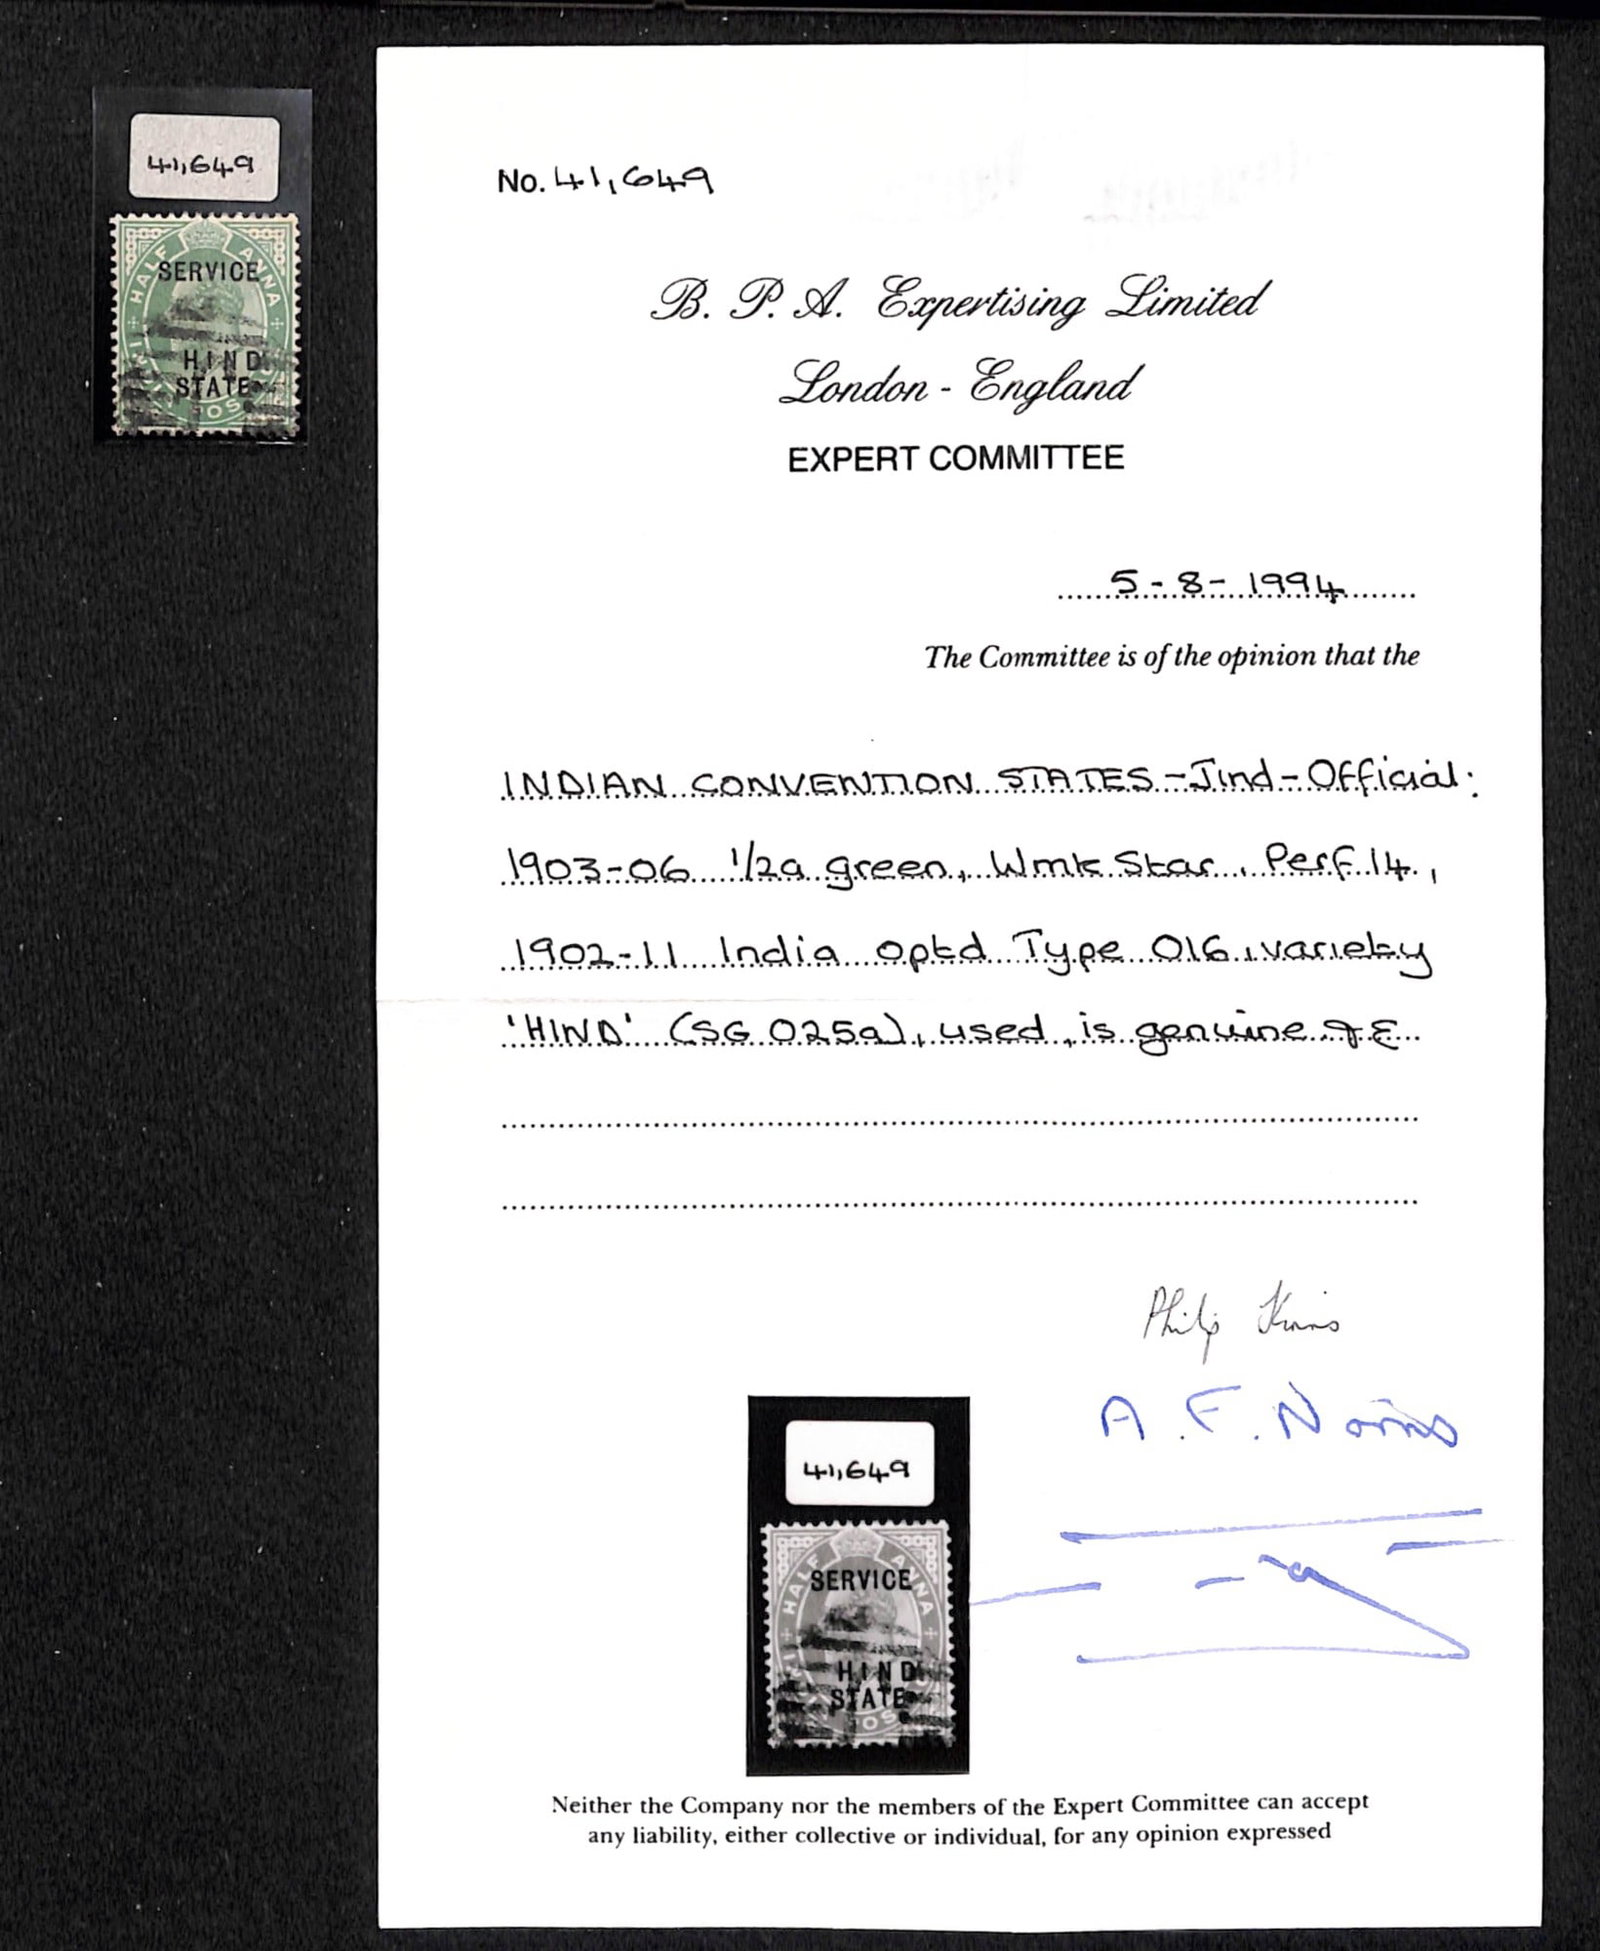 41,649
HALF ANNA
SERVICE
HIND
STATE
No. 41,649
B. P. A. Expertising Limited
London - England
EXPERT COMMITTEE
5-8-1994
The Committee is of the opinion that the
INDIAN CONVENTION STATES-Jind-Official:
1903-06 1/2a green, Wmk Star, Perf 14,
1902-11 India optd Type O16, variety
'HIND' (SG O25a), used, is genuine
Philip
A. F. Norris
41,649
HALF ANNA
SERVICE
HIND
STATE
Neither the Company nor the members of the Expert Committee can accept
any liability, either collective or individual, for any opinion expressed